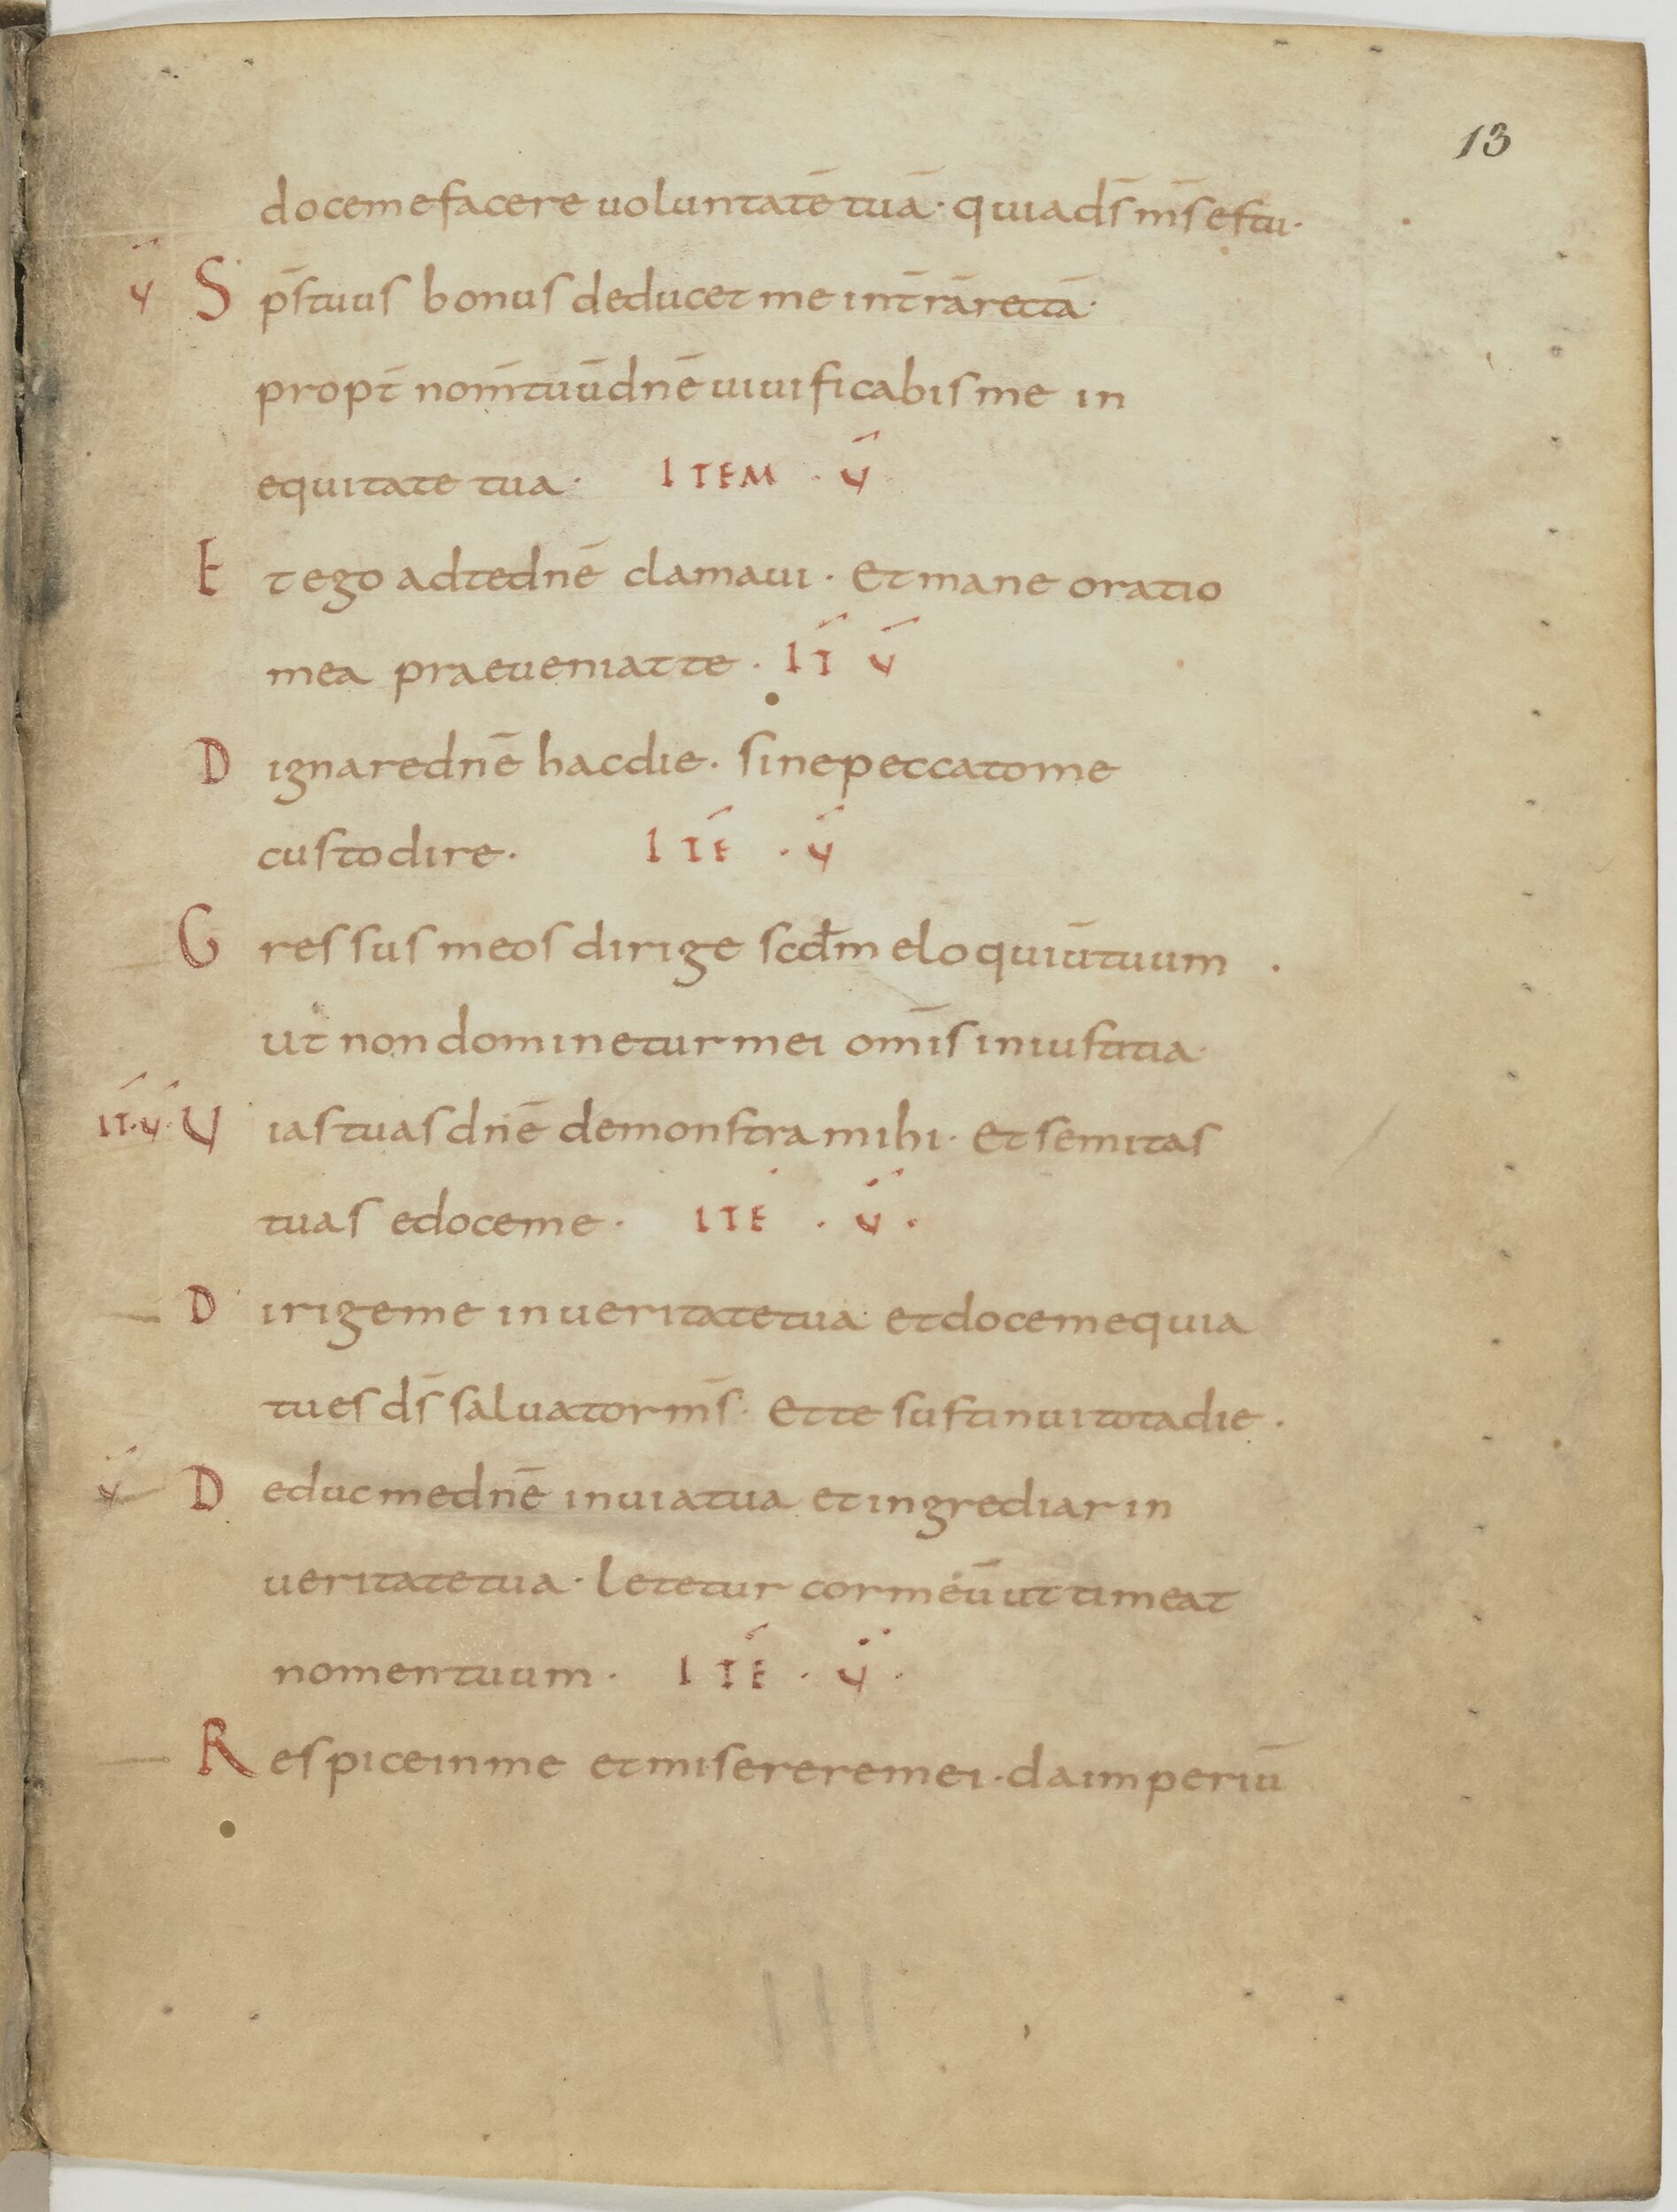 13
doce me facere uoluntatē tuā· quia ds̄ ms̄ es tu·
v̄ S ps̄ tuus bonus deducet me in tr̄ā rectā·
propt̄ nom̄ tuū dnē uiuificabis me in
equitate tua· ITEM · v̄
E t ego ad te dnē clamaui· Et mane oratio
mea praeueniat te· IT̄ v̄
D ignare dnē hac die· sine peccato me
custodire· ITĒ · v̄
G ressus meos dirige scdm̄ eloquiū tuum ·
ut non dominetur mei om̄is iniustitia·
IT̄· v̄· U ias tuas dnē demonstra mihi· Et semitas
tuas edoce me· ITĒ · v̄ ·
D irige me in ueritate tua· et doce me quia
tu es ds̄ saluator ms̄· Et te sustinui tota die·
v̄ D educ me dnē in uia tua et ingrediar in
ueritate tua· letetur cor meū ut timeat
nomen tuum· ITĒ · v̄ ·
R espice in me et miserere mei· da imperiū